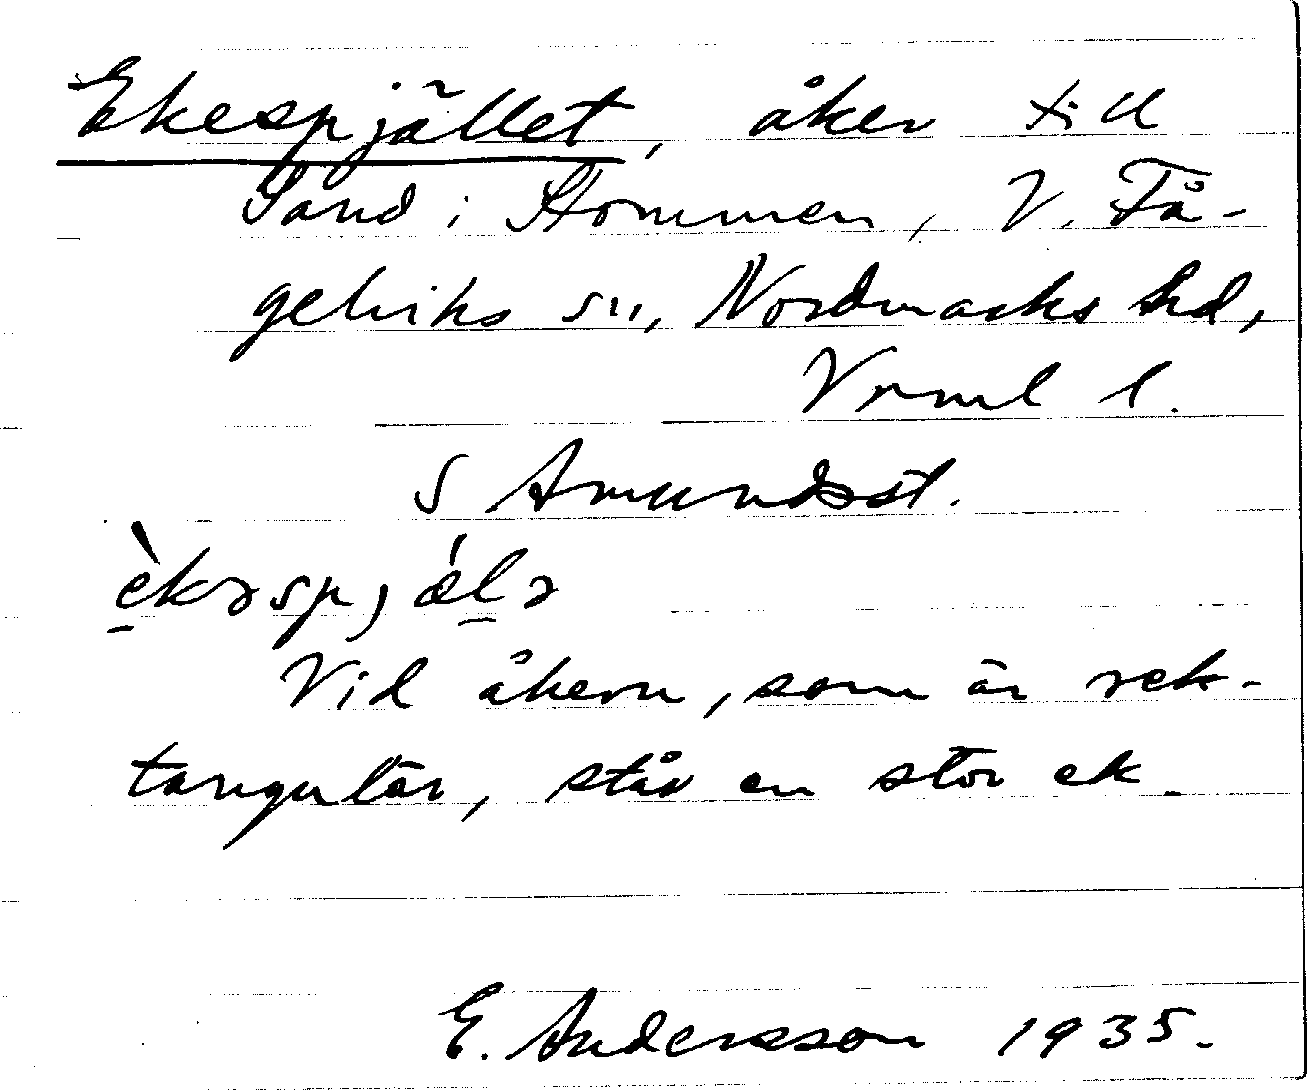 Ekespjället, åker till
Sand i Stommen, V. Få-
gelviks sn, Nordmarks hd,
Vrml l.
S Amundsst.
èkəspjǽlə
Vid åkern, som är rek-
tangulär, står en stor ek.
E. Andersson 1935.